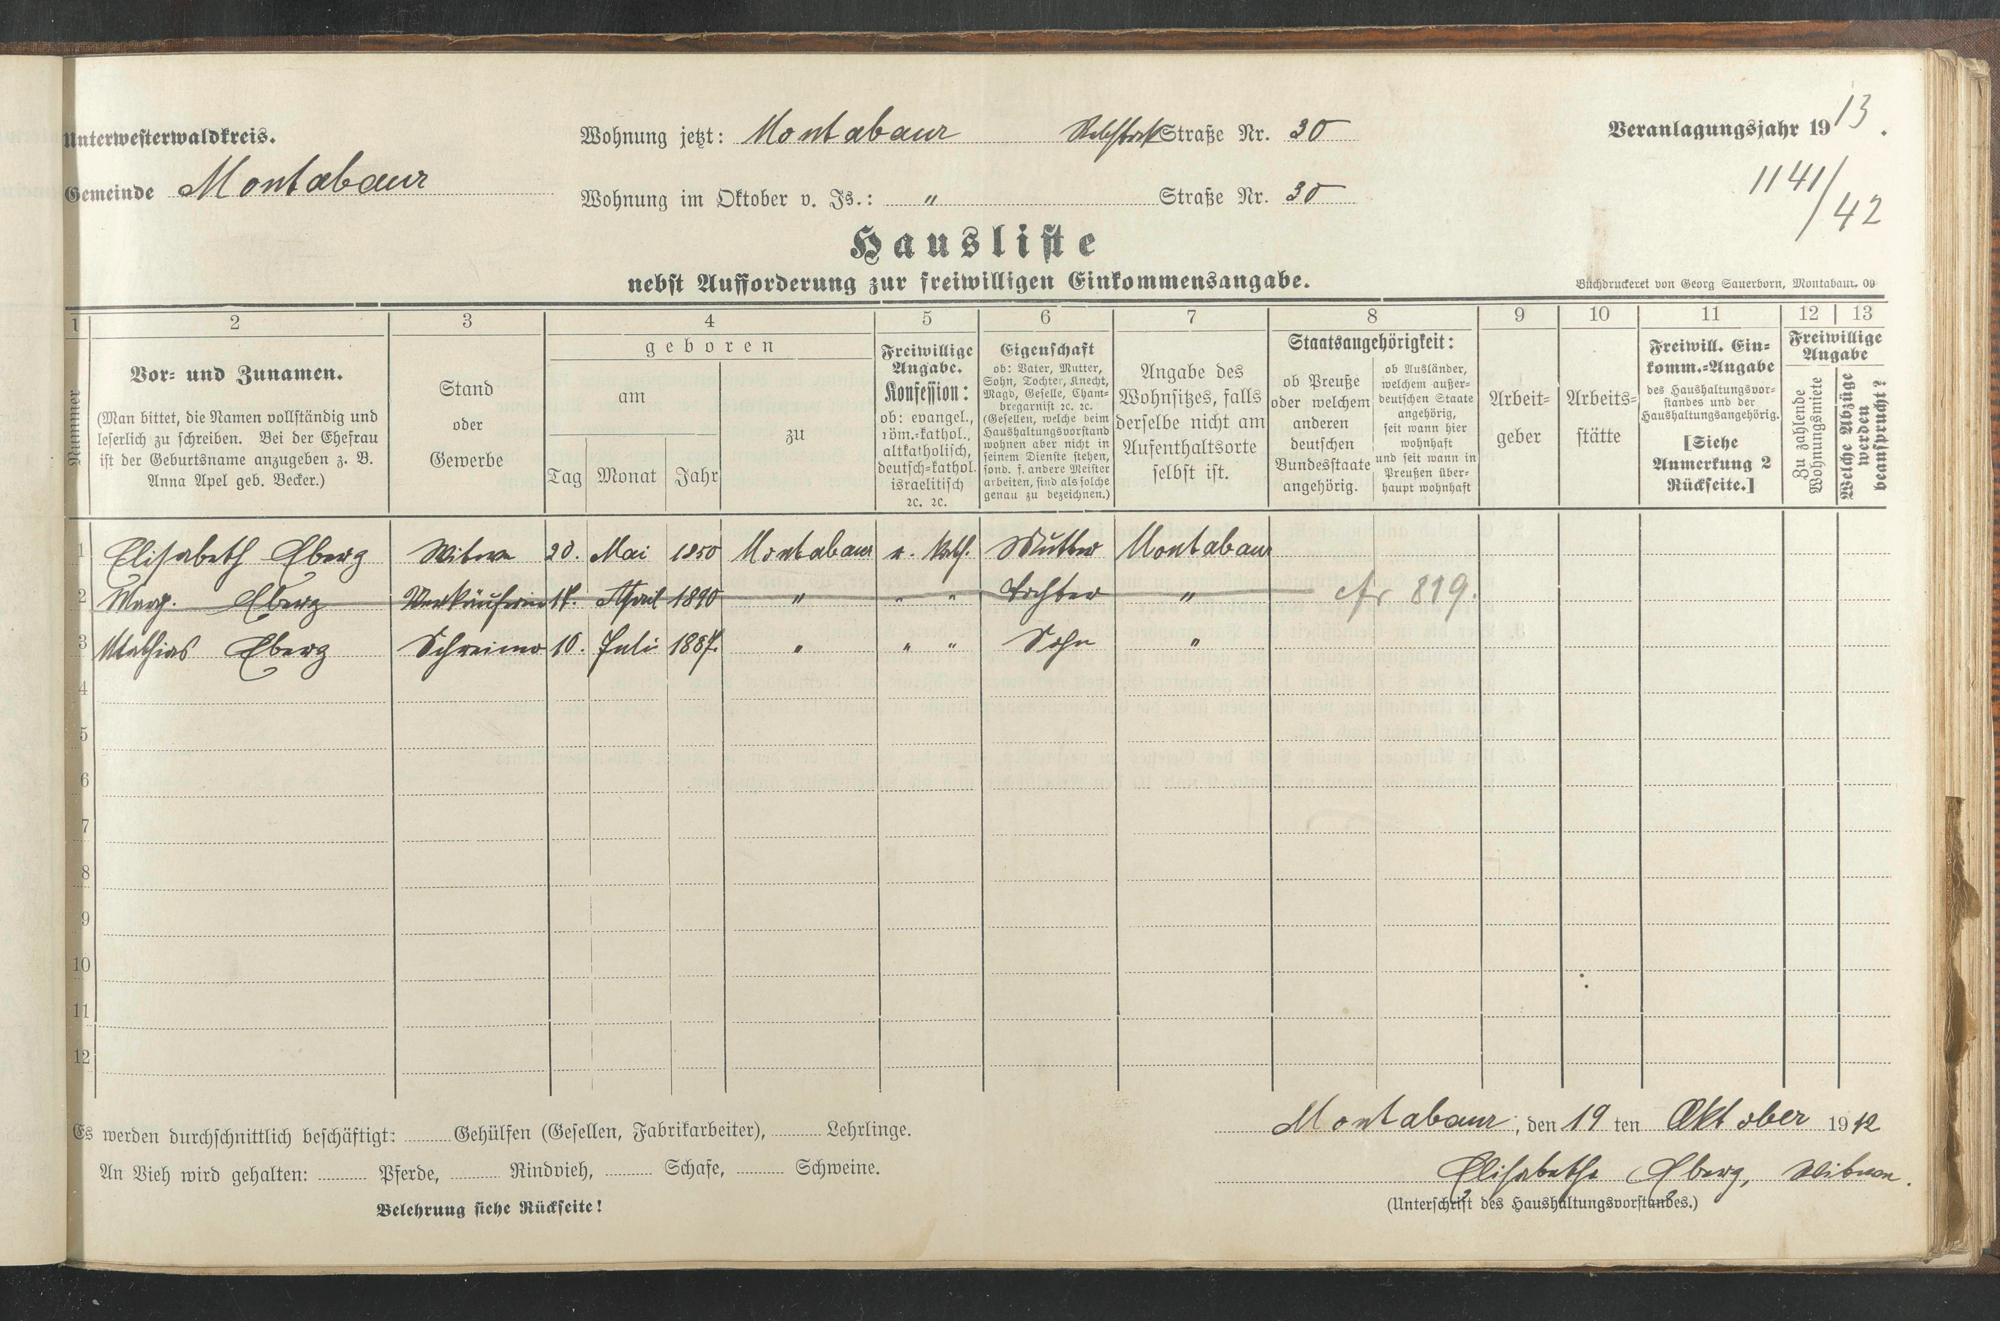 Unterwesterwaldkreis.
Gemeinde Montabaur
Wohnung jetzt: Montabaur Rebstock Straße Nr. 30
Wohnung im Oktober v. Js.: " Straße Nr. 30
Veranlagungsjahr 1913.
1141/42
Hausliste
nebst Aufforderung zur freiwilligen Einkommensangabe.
Buchdruckerei von Georg Sauerborn, Montabaur. 09
1 2 3 4 5 6 7 8 9 10 11 12 13
Nummer
Vor- und Zunamen.
(Man bittet, die Namen vollständig und
leserlich zu schreiben. Bei der Ehefrau
ist der Geburtsname anzugeben z. B.
Anna Apel geb. Becker.)
Stand
oder
Gewerbe
geboren
am
Tag Monat Jahr
zu
Freiwillige
Angabe.
Konfession:
ob: evangel.,
röm.-kathol.,
altkatholisch,
deutsch-kathol.
israelitisch
ꝛc. ꝛc.
Eigenschaft
ob: Vater, Mutter,
Sohn, Tochter, Knecht,
Magd, Geselle, Cham-
bregarnist ꝛc. ꝛc.
(Gesellen, welche beim
Haushaltungsvorstand
wohnen aber nicht in
seinem Dienste stehen,
sond. f. andere Meister
arbeiten, sind als solche
genau zu bezeichnen.)
Angabe des
Wohnsitzes, falls
derselbe nicht am
Aufenthaltsorte
selbst ist.
Staatsangehörigkeit:
ob Preuße
oder welchem
anderen
deutschen
Bundesstaate
angehörig.
ob Ausländer,
welchem außer-
deutschen Staate
angehörig,
seit wann hier
wohnhaft
und seit wann in
Preußen über-
haupt wohnhaft
Arbeit-
geber
Arbeits-
stätte
Freiwill. Ein-
komm.-Angabe
des Haushaltungsvor-
standes und der
Haushaltungsangehörig.
[Siehe
Anmerkung 2
Rückseite.]
Freiwillige
Angabe
Zu zahlende
Wohnungsmiete
Welche Abzüge
werden
beansprucht?
1 Elisabeth Eberz Witwe 20. Mai 1850 Montabaur r. kath. Mutter Montabaur
2 Marg. Eberz Verkäuferin April 1890 " " " Tochter " cfr 819.
3 Mathias Eberz Schreiner 10. Juli 1887. " " " Sohn "
4
5
6
7
8
9
10
11
12
Es werden durchschnittlich beschäftigt: Gehülfen (Gesellen, Fabrikarbeiter), Lehrlinge.
An Vieh wird gehalten: Pferde, Rindvieh, Schafe, Schweine.
Belehrung siehe Rückseite!
Montabaur, den 19 ten Oktober 1912
Elisabetha Eberz, Witwe.
(Unterschrift des Haushaltungsvorstandes.)